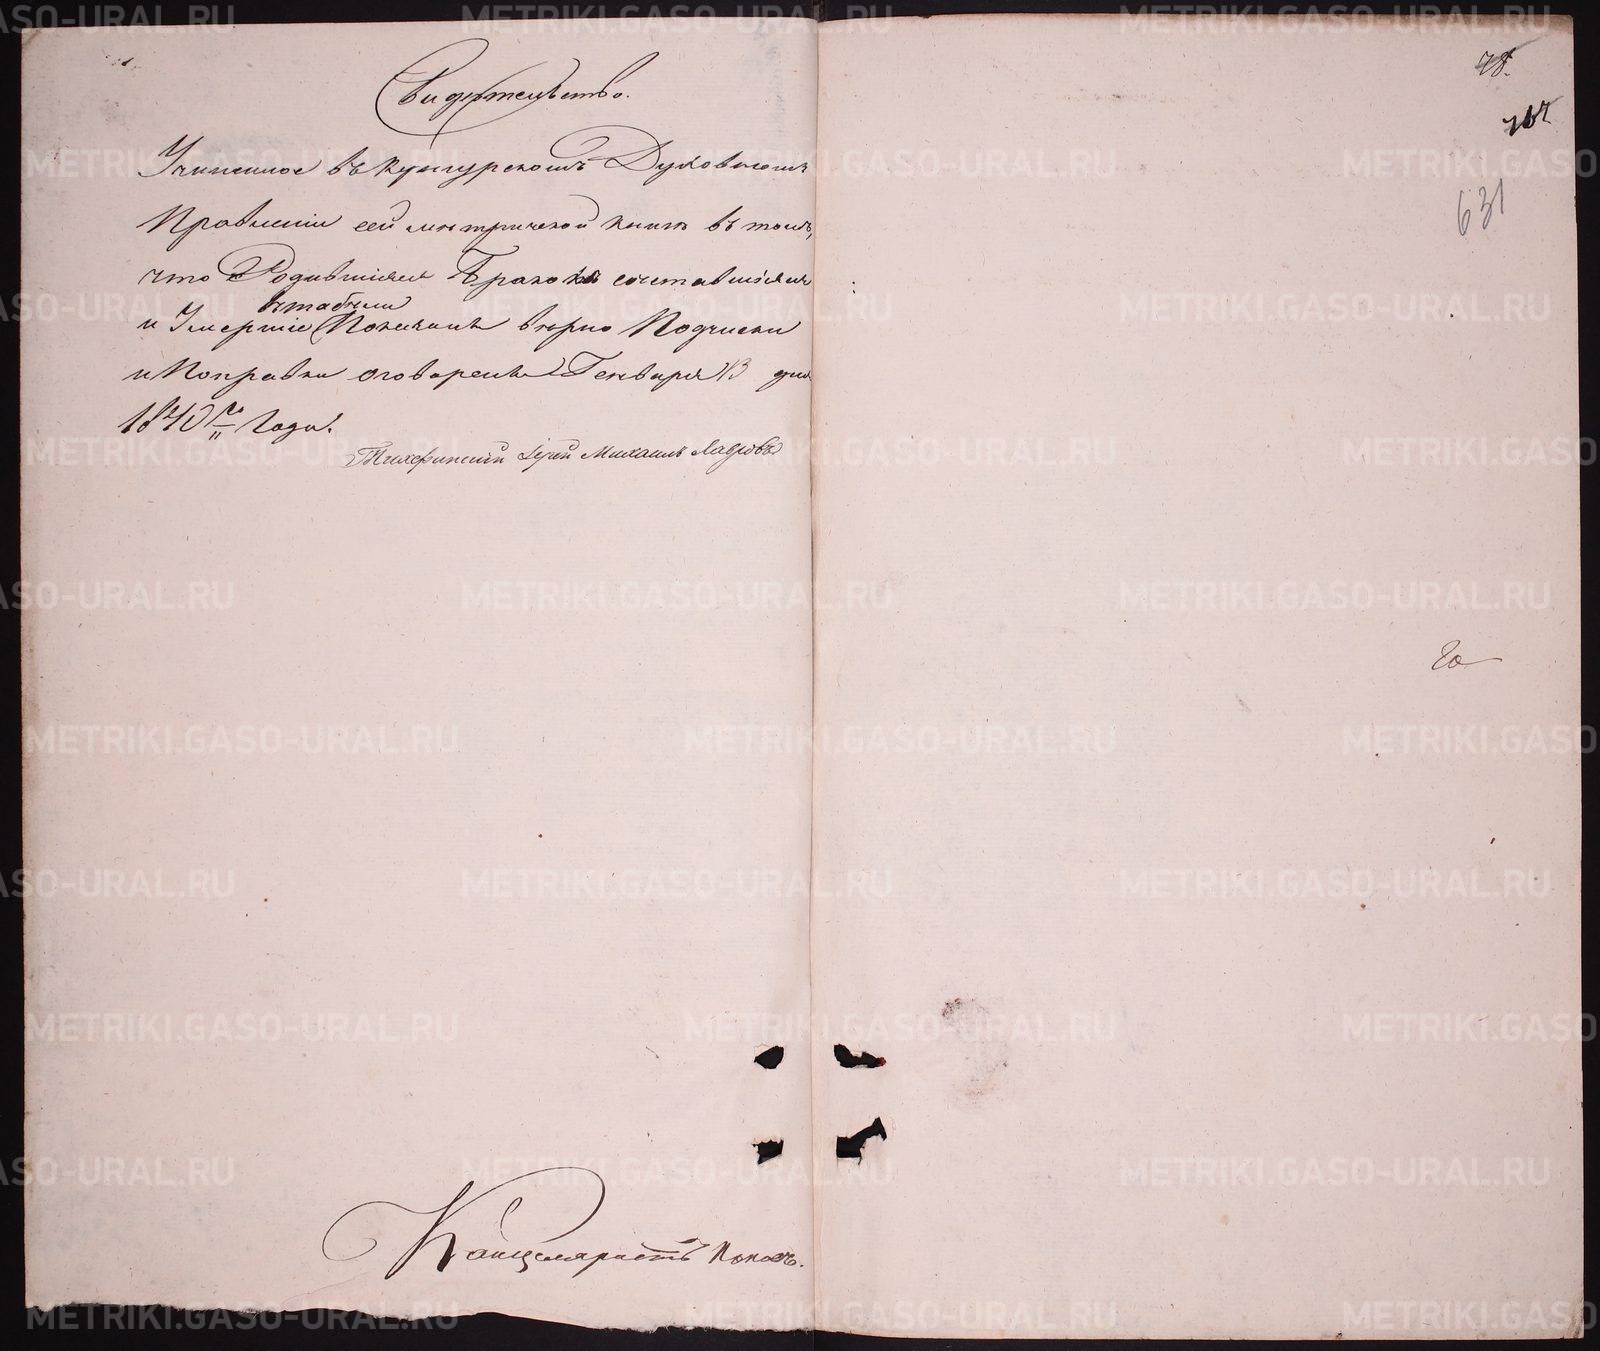 Свидѣтельство.
Учиненное въ Кунгурскомъ Духовномъ
Правленіи сей метрической книги въ томъ,
что Родившіяся Бракомъ сочетавшіяся
въ табели
и Умершіе Показаны вѣрно Подчиски
и Поправки оговорены Генваря 13 дня
1840го Года.
Іерей Михаилъ Лавровъ
Канцеляристъ Поповъ.
78.
631
METRIKI.GASO-URAL.RU